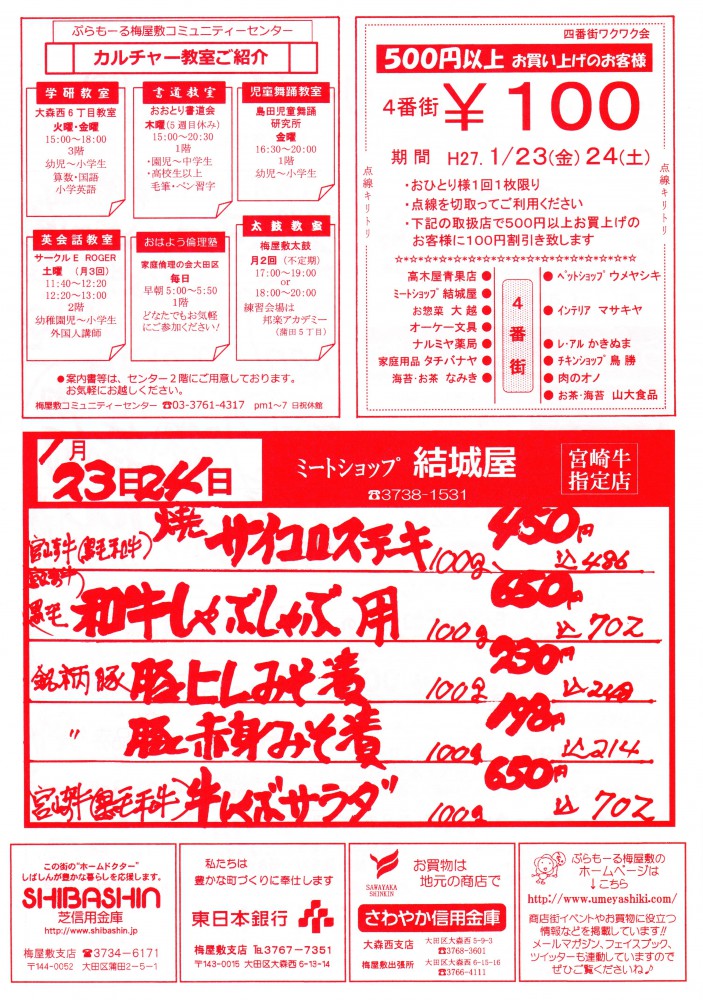 ぷらもーる梅屋敷コミュニティーセンター
カルチャー教室ご紹介
学研教室
大森西6丁目教室
火曜・金曜
15:00～18:00
3階
幼児～小学生
算数・国語
小学英語
書道教室
おおとり書道会
木曜(5週目休み)
15:00～20:30
1階
・園児～中学生
・高校生以上
毛筆・ペン習字
児童舞踊教室
島田児童舞踊
研究所
金曜
16:30～20:00
1階
幼児～小学生
英会話教室
サークルE ROGER
土曜 (月3回)
11:40～12:20
12:20～13:00
2階
幼稚園児～小学生
外国人講師
おはよう倫理塾
家庭倫理の会大田区
毎日
早朝5:00～5:50
1階
どなたでもお気軽
にご参加ください!
太鼓教室
梅屋敷太鼓
月2回 (不定期)
17:00～19:00
or
18:00～20:00
練習会場は
邦楽アカデミー
(蒲田5丁目)
●案内書等は、センター2階にご用意しております。
お気軽にお越しください。
梅屋敷コミュニティーセンター ☎03-3761-4317 pm1～7 日祝休館
四番街ワクワク会
500円以上 お買い上げのお客様
4番街 ￥100
期間 H27. 1/23(金) 24(土)
・おひとり様1回1枚限り
・点線を切取ってご利用ください
・下記の取扱店で500円以上お買上げの
お客様に100円割引き致します
点線キリトリ
点線キリトリ
☆☆☆☆☆☆☆☆☆☆☆☆☆☆☆☆☆☆☆☆☆☆☆☆☆☆☆☆
高木屋青果店●
ミートショップ結城屋●
お惣菜 大越●
オーケー文具●
ナルミヤ薬局●
家庭用品 タチバナヤ●
海苔・お茶 なみき●
4番街
●ペットショップウメヤシキ
●インテリア マサキヤ
●レ・アル かきぬま
●チキンショップ鳥勝
●肉のオノ
●お茶・海苔 山大食品
1月
23日24日
ミートショップ 結城屋
☎3738-1531
宮崎牛
指定店
宮崎牛(黒毛和牛) 焼 サイコロステーキ 100g 450円 込486
宮崎牛 黒毛 和牛しゃぶしゃぶ用 100g 650円 込702
銘柄豚 豚上しみそ漬 100g 230円 込248
〃 豚赤身みそ漬 100g 198円 込214
宮崎牛(黒毛和牛) 牛しゃぶサラダ 100g 650円 込702
この街の"ホームドクター"
しばしんが豊かな暮らしを応援します。
SHIBASHIN
芝信用金庫
http://www.shibashin.jp
梅屋敷支店 ☎3734-6171
〒144-0052 大田区蒲田2-5-1
私たちは
豊かな町づくりに奉仕します
東日本銀行
梅屋敷支店 ℡3767-7351
〒143-0015 大田区大森西6-13-14
SAWAYAKA
SHINKIN
お買物は
地元の商店で
さわやか信用金庫
大森西支店 大田区大森西5-9-3
☎3768-3601
梅屋敷出張所 大田区大森西6-15-16
☎3766-4111
ぷらもーる梅屋敷の
ホームページは
↓こちら
http://www.umeyashiki.com/
商店街イベントやお買物に役立つ
情報などを掲載しています!!
メールマガジン、フェイスブック、
ツイッターも連動していますので
ぜひご覧くださいね♪